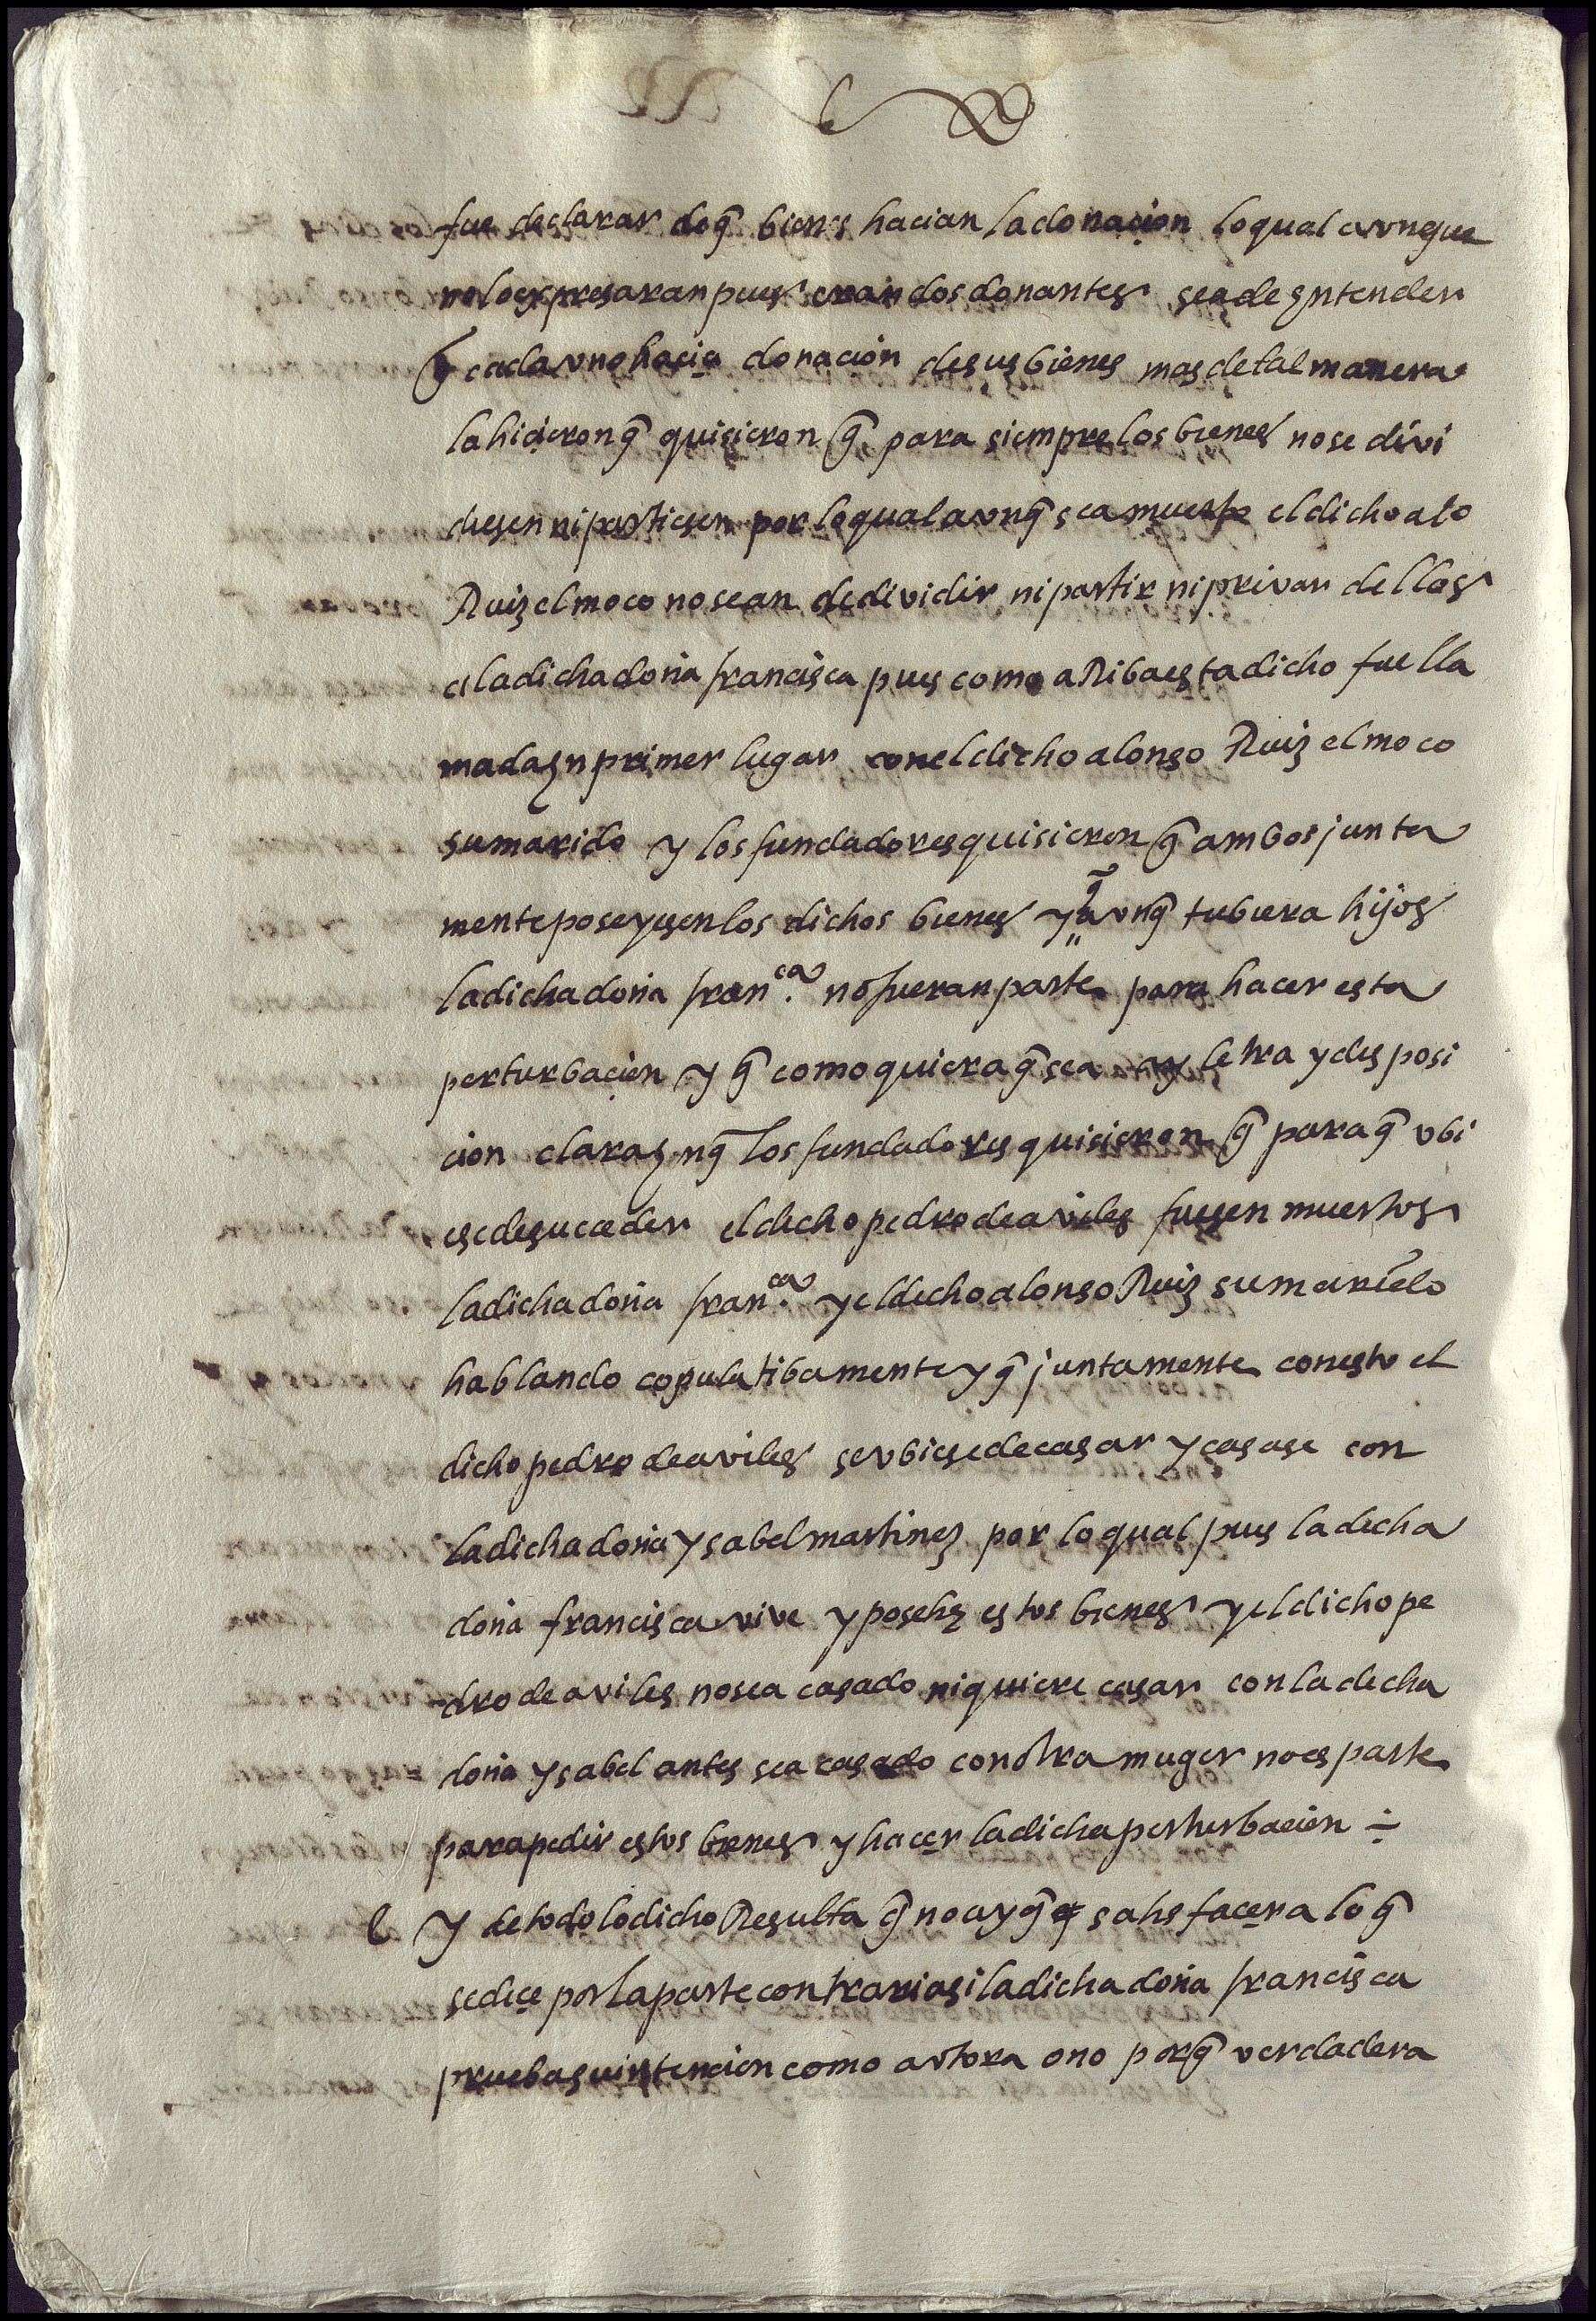 fue declarar de q̃ bienes hacian la donacion lo qual avnque
no lo expresaran pues eran dos donantes sea de entender
q̃ cada vno hacia donacion de sus bienes mas de tal manera
la hicieron q̃ quisieron q̃ para siempre los bienes no se divi
diesen ni partiesen por lo qual avnq̃ sea muerto el dicho alo
Ruiz el moco no sean de dividir ni partir ni privar dellos
a la dicha doña francisca pues como aRiba esta dicho fue lla
mada en primer lugar con el dicho alonso Ruiz el moco
su marido y los fundadores quisieron q̃ ambos junta
mente poseyesen los dichos bienes y q̃ avnq̃ tubiera hijos
la dicha doña fran.ca no fueran parte para hacer esta
perturbacion y q̃ como quiera q̃ sea ay letra y disposi
cion clara en q̃ los fundadores quisieron q̃ para q̃ vbi
ese de suceder el dicho pedro de aviles fuesen muertos
la dicha doña fran.ca y el dicho alonso Ruiz su marido
hablando copulatibamente y q̃ juntamente con esto el
dicho pedro de aviles se vbiese de casar y casase con
la dicha doña ysabel martinez por lo qual pues la dicha
doña francisca vive y posehe estos bienes y el dicho pe
dro de aviles no sea casado ni quiere casar con la dicha
doña ysabel antes sea casado con otra muger no es parte
para pedir estos bienes y hacer la dicha perturbacion ÷
Y de todo lo dicho Resulta q̃ no ay q̃ satisfacer a lo q̃
se dice por la parte contraria si la dicha doña francisca
prueba su intencion como avtora o no porq̃ verdadera